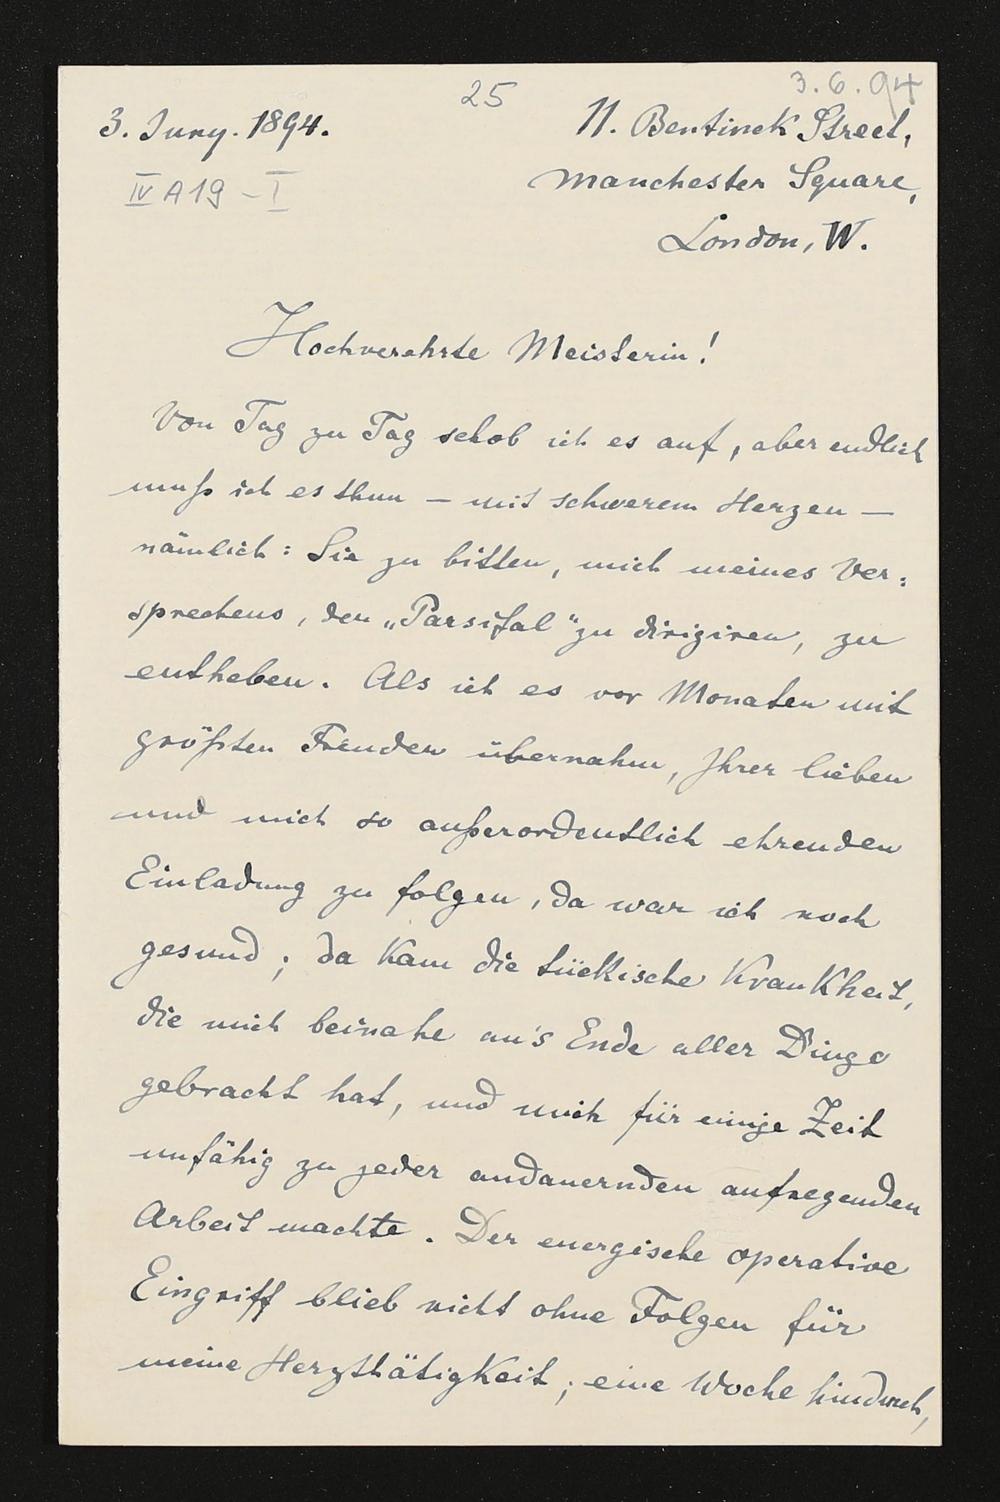 25
3.6.94
3. Juny. 1894.
11. Bentinck Street,
IV A 19 - I
Manchester Square,
London, W.
Hochverehrte Meisterin!
Von Tag zu Tag schob ich es auf, aber endlich
muß ich es thun — mit schwerem Herzen —
nämlich: Sie zu bitten, mich meines Ver:
sprechens, den „Parsifal" zu dirigiren, zu
entheben. Als ich es vor Monaten mit
größten Freuden übernahm, Ihrer lieben
und mich so außerordentlich ehrenden
Einladung zu folgen, da war ich noch
gesund; da kam die tückische Krankheit,
die mich beinahe an's Ende aller Dinge
gebracht hat, und mich für einige Zeit
unfähig zu jeder andauernden aufregenden
Arbeit machte. Der energische operative
Eingriff blieb nicht ohne Folgen für
meine Herzthätigkeit; eine Woche hindurch,